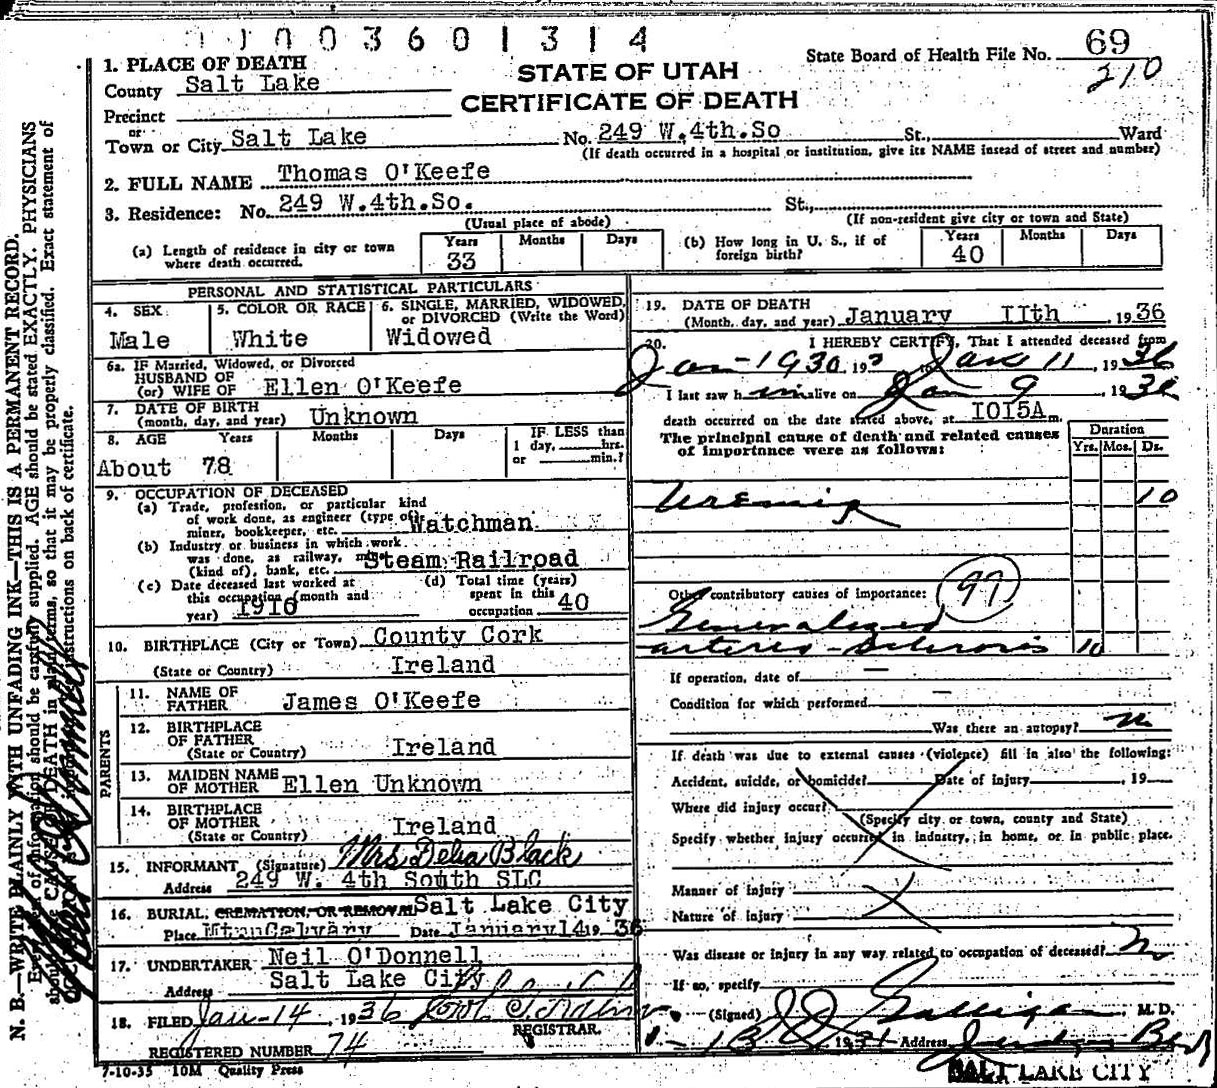 1 1 0 0 3 6 0 1 3 1 4
State Board of Health File No. 69
210
STATE OF UTAH
CERTIFICATE OF DEATH
1. PLACE OF DEATH
County Salt Lake
Precinct
or
Town or City Salt Lake No. 249 W.4th.So St., Ward
(If death occurred in a hospital or institution, give its NAME insead of street and number)
2. FULL NAME Thomas O'Keefe
3. Residence: No. 249 W.4th.So. St.,
(Usual place of abode) (If non-resident give city or town and State)
(a) Length of residence in city or town where death occurred. Years 33 Months Days
(b) How long in U. S., if of foreign birth? Years 40 Months Days
PERSONAL AND STATISTICAL PARTICULARS
4. SEX Male
5. COLOR OR RACE White
6. SINGLE, MARRIED, WIDOWED, or DIVORCED (Write the Word) Widowed
6a. IF Married, Widowed, or Divorced
HUSBAND OF
(or) WIFE OF Ellen O'Keefe
7. DATE OF BIRTH
(month, day, and year) Unknown
8. AGE Years Months Days IF LESS than
1 day, hrs.
or min.?
About 78
9. OCCUPATION OF DECEASED
(a) Trade, profession, or particular kind
of work done, as engineer (type of)
miner, bookkeeper, etc. Watchman
(b) Industry or business in which work
was done, as railway, mine
(kind of), bank, etc. Steam Railroad
(c) Date deceased last worked at
this occupation (month and
year) 1916
(d) Total time (years)
spent in this
occupation 40
10. BIRTHPLACE (City or Town) County Cork
(State or Country) Ireland
PARENTS
11. NAME OF
FATHER James O'Keefe
12. BIRTHPLACE
OF FATHER
(State or Country) Ireland
13. MAIDEN NAME
OF MOTHER Ellen Unknown
14. BIRTHPLACE
OF MOTHER
(State or Country) Ireland
15. INFORMANT (Signature) Mrs Delia Black
Address 249 W. 4th South SLC
16. BURIAL, CREMATION, OR REMOVAL Salt Lake City
Place Mtn Calvary Date January 14 19 36
17. UNDERTAKER Neil O'Donnell
Salt Lake City
Address
18. FILED Jan-14, 1936
REGISTRAR.
REGISTERED NUMBER 74
7-10-35 10M Quality Press
19. DATE OF DEATH
(Month, day, and year) January IIth 1936
20. I HEREBY CERTIFY, That I attended deceased from
Jan-1930 19 to Jan 11, 1936
I last saw h im alive on Jan 9, 1936
death occurred on the date stated above, at IOI5A m.
The principal cause of death and related causes
of importance were as follows:
Duration
Yrs. Mos. Ds.
Uremia 10
Other contributory causes of importance: 97
Generalized
arterio-sclerosis 10
If operation, date of —
Condition for which performed —
Was there an autopsy? no
If death was due to external causes (violence) fill in also the following:
Accident, suicide, or homicide? Date of injury , 19
Where did injury occur?
(Specify city or town, county and State)
Specify whether injury occurred in industry, in home, or in public place.
Manner of injury
Nature of injury
Was disease or injury in any way related to occupation of deceased? no
If so, specify
(Signed) Galligan, M. D.
1-13 1936 Address Judge Bldg
SALT LAKE CITY
N. B.—WRITE PLAINLY WITH UNFADING INK—THIS IS A PERMANENT RECORD.
Every item of information should be carefully supplied. AGE should be stated EXACTLY. PHYSICIANS
should state CAUSE OF DEATH in plain terms, so that it may be properly classified. Exact statement of
OCCUPATION instructions on back of certificate.